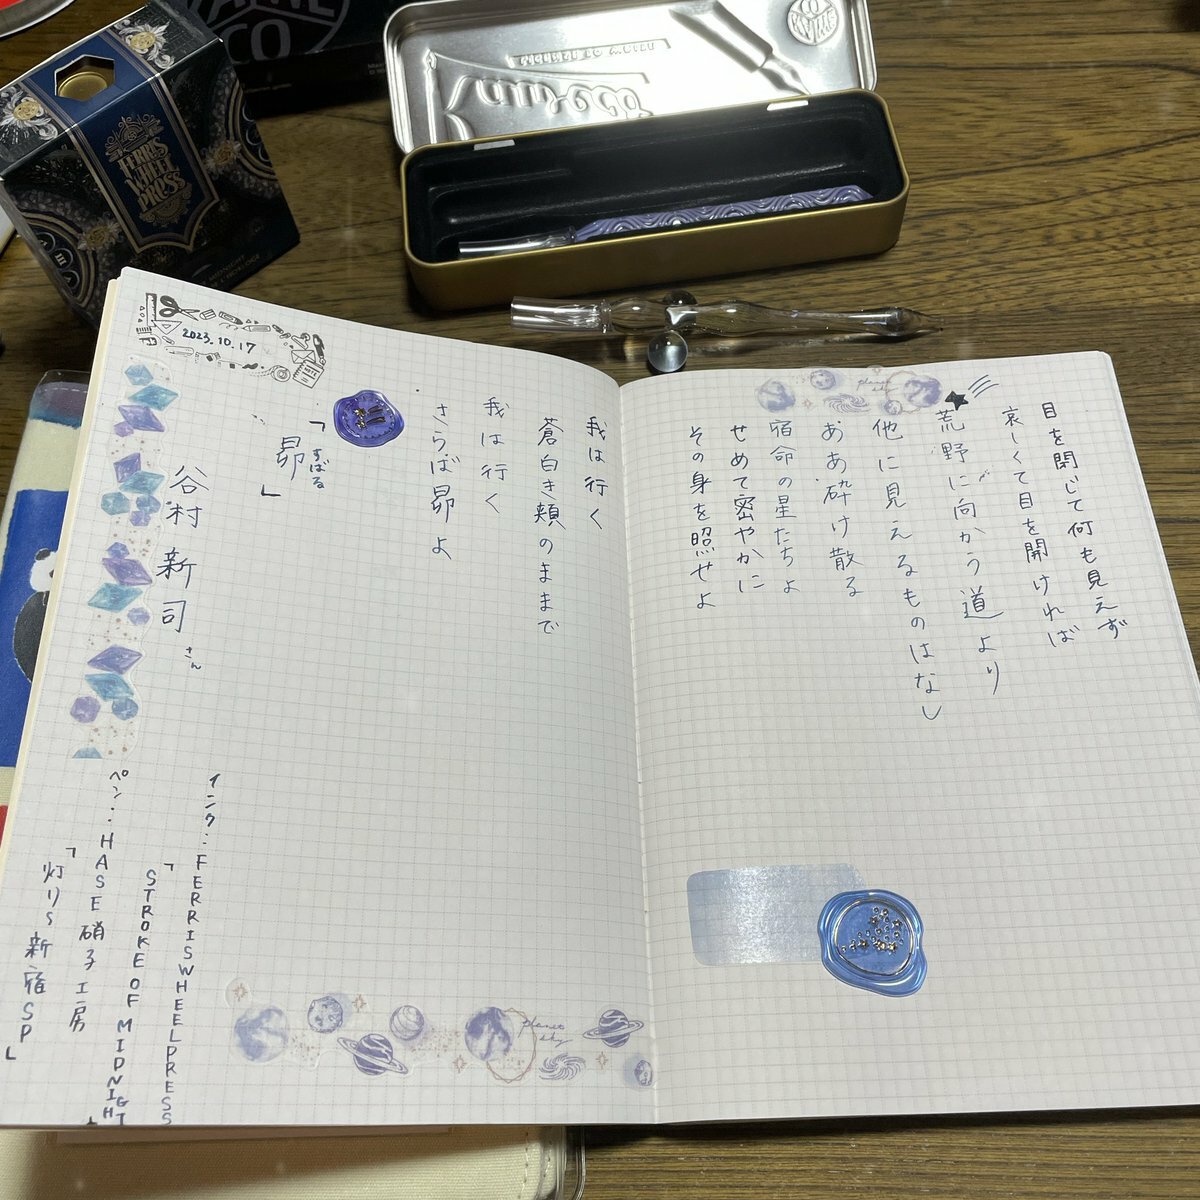 FERRIS
WHEEL
PRESS
2023.10.17
planet
sky
目を閉じて何も見えず
哀しくて目を開ければ
荒野に向かう道より
他に見えるものはなし
ああ砕け散る
宿命の星たちよ
せめて密やかに
その身を照せよ
我は行く
蒼白き頬のままで
我は行く
さらば昴よ
「昴」
すばる
谷村 新司 さん
インク:FERRISWHEELPRESS
「STROKE OF MIDNIGHT
ペン...HASE硝子工房
「灯り〜新宿SP」
planet
sky